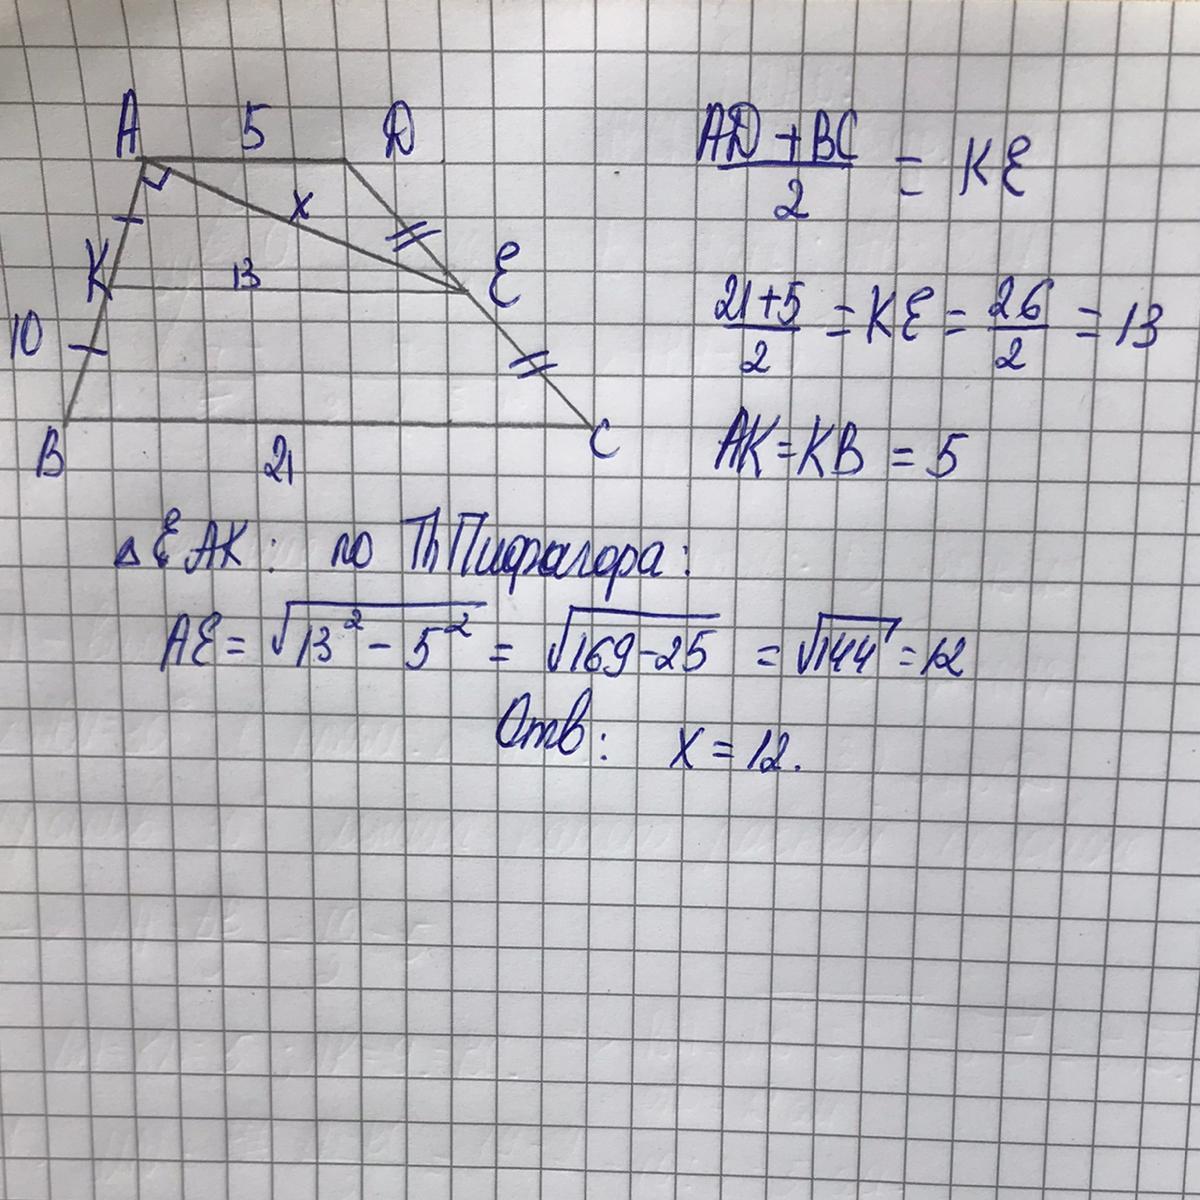 A 5 D
x
K 13 E
10
B 21 C
AD + BC / 2 = KE
21+5 / 2 = KE = 26 / 2 = 13
AK = KB = 5
△EAK: по Th Пифагора:
AE = √13² - 5² = √169-25 = √144 = 12
Отв: x = 12.